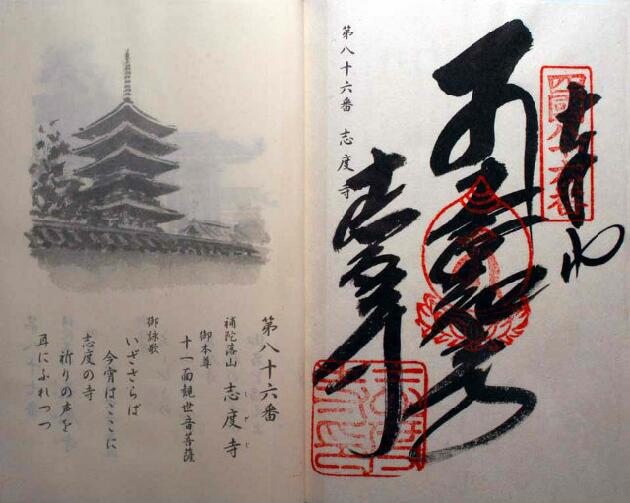 奉納
四國八十六番
志度寺
第八十六番 志度寺
第八十六番
補陀落山 志度寺
しどじ
御本尊
十一面観世音菩薩
御詠歌
いざさらば
今宵はここに
志度の寺
祈りの声を
耳にふれつつ